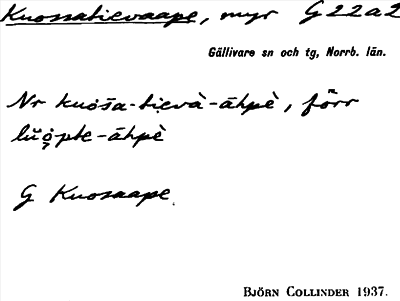 Kuossatievaape, myr G22a2
Gällivare sn och tg, Norrb. län.
Nr kuo̭s̄a-ti̭evà-āhpè, förr
lŭo̭pte-āhpè
G Kuosaape.
BJÖRN COLLINDER 1937.